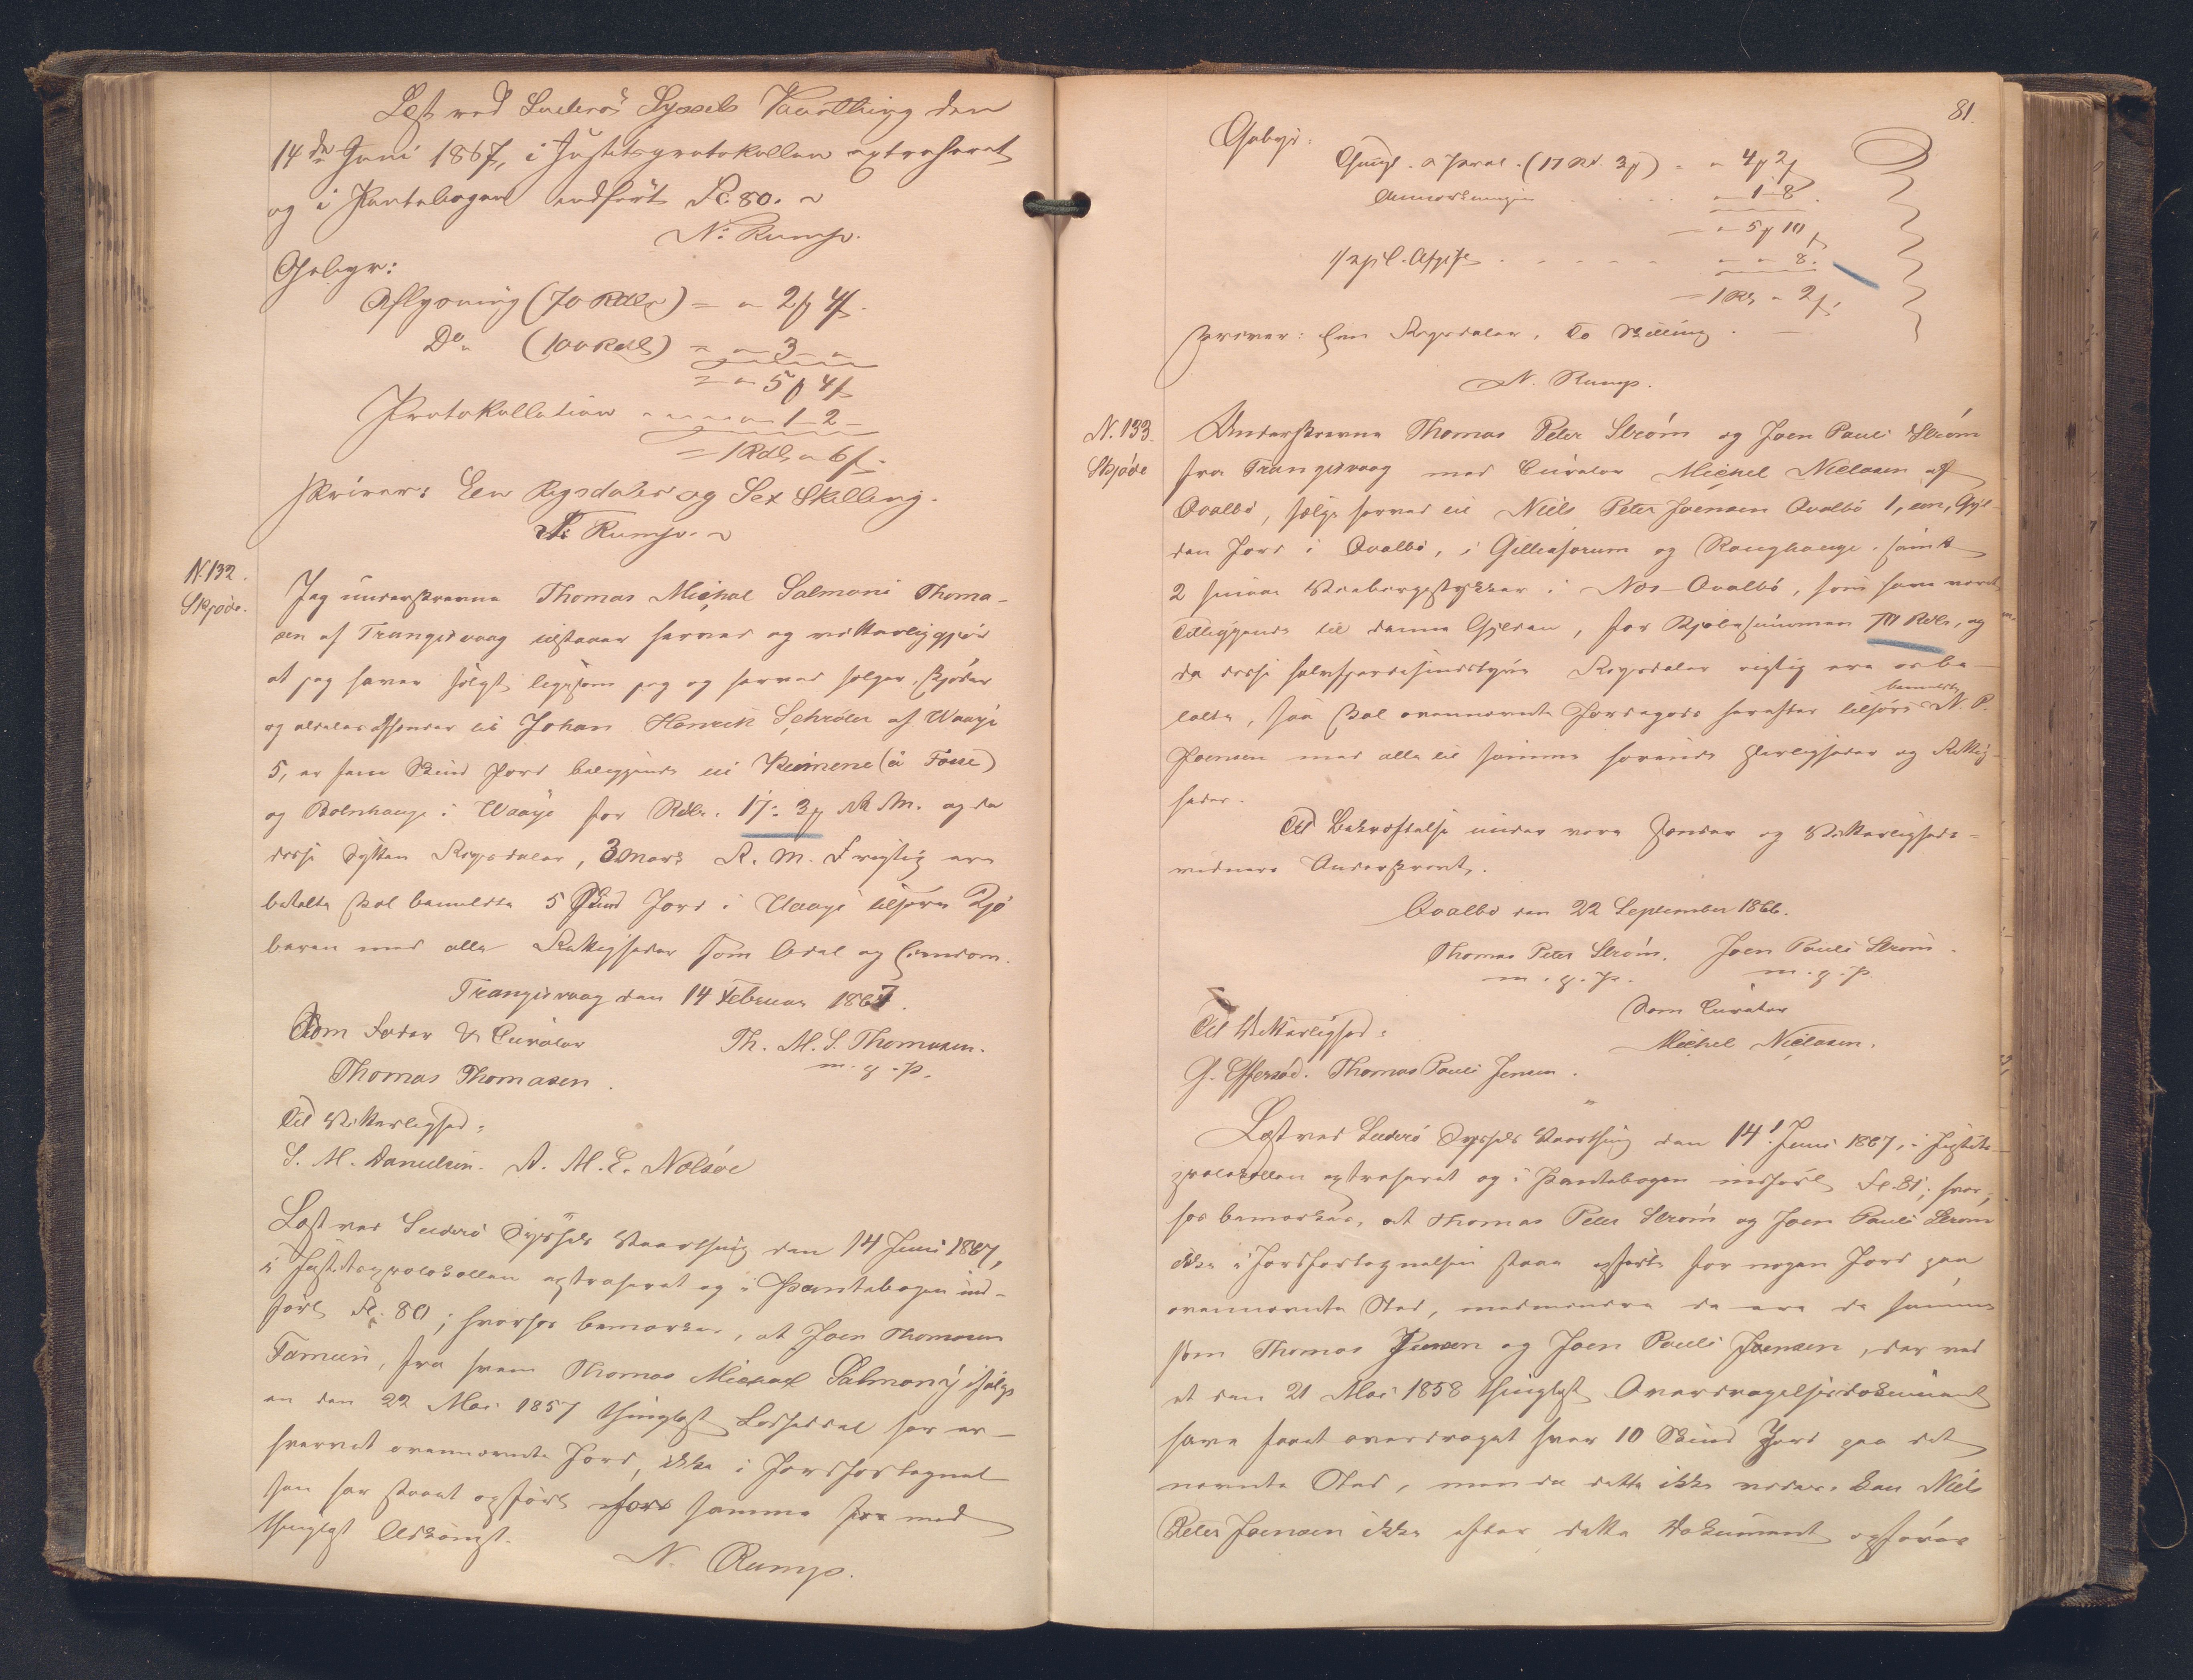 Læst ved Suderö Syssels Vaarthing den
14de Juni 1867, i Justitsprotokollen extraheret
og i Pantebogen indført Fo. 80.
N. Rump.
Gebyr:
Aflysning (70 Rdlr) = " 2 ℳ 4 s.
Do (100 Rdl) = " 3 - "
= " 5 ℳ 4 s
Protokollation " 1 - 2 -
= 1 Rdlr " 6 s.
skriver: Een Rigsdaler og Sex Skilling.
N. Rump.
N. 132.
Skjøde.
Jeg underskrevne Thomas Michal Salmoni Thoma-
sen af Trangisvaag tilstaaer herved og vitterliggjør
at jeg haver solgt, ligesom jeg og herved sælger, skjøder
og aldeles afhænder til Johan Henrik Schröter af Waaje
5, er fem Skind Jord beliggende i Keimene (á Fosse)
og Bolnhauge i Waaje for Rdlr. 17: 3 ℳ R. M. og da
disse sytten Rigsdaler, 3 Mark R. M. rigtig ere
betalte skal bemeldte 5 Skind Jord i Waaje tilhøre Kjö
beren med alle Rettigheder som Odel og Eiendom.
Trangisvaag den 14 Februar 1867.
Som Fader & Curator
Th. M. S. Thomasen.
m. g. p.
Thomas Thomasen.
Til Vitterlighed:
S. M. Danielsen. A. M. E. Nolsøe
Læst ved Suderö Syssels Vaarthing den 14 Juni 1867,
i Justitsprotokollen extraheret og i Pantebogen ind-
ført Fo. 80; hvorhos bemærkes, at Joen Thomasen
Famien, fra hvem Thomas Michael Salmony ifølge
en den 22 Mai 1857 thinglæst har er-
hvervet ovennævnte Jord, ikke i Jordfortegnel
sen har staaet opført for samme med
thinglyst Adkomst.
N. Rump.
81.
Gebyr:
Thingl. a Paral. (17 Rd. 3 ℳ) = " 4 ℳ 2 s
Anmærkningen " 1 - 8.
" 5 ℳ 10 s
Afgift " " 8.
= 1 Rd. " 2 s.
skriver: Een Rigsdaler, To Skilling.
N. Rump.
N. 133.
Skjøde
Underskrevne Thomas Peter Ström og Joen Pauli Ström
fra Trangisvaag med Curator Michel Nielasen af
Qvalbö, sælge herved til Niels Peter Joensen Qvalbö 1, een, Gyl-
den Jord i Qvalbö, i Gilliaforum og Ronghauge, samt
2 smaae i Nes-Qvalbö, som have været
tilliggende til denne Gylden, for Kjøbesummen 70 Rdlr, og
da disse halvfjerdesindstyve Rigsdaler rigtig ere os be-
talte, saa skal ovennævnte Jordegods herefter tilhøre bemeldte N. P.
Joensen med alle til samme hørende Herligheder og Rettig-
heder.
Til Bekræftelse under vore Hænder og Vitterligheds-
vidners Underskrevet.
Qvalbö den 22 September 1866.
Thomas Peter Ström. Joen Pauli Ström.
m. g. p. m. g. p.
Som Curator
Til Vitterlighed:
Michel Nielasen.
G. Effersöe. Thomas Pauli Jensen.
Læst ved Suderö Syssels Vaarthing den 14. Juni 1867, i Justits-
protokollen extraheret og i Pantebogen indført Fo. 81; hvor-
hos bemærkes, at Thomas Peter Ström og Joen Pauli Ström
ikke i Jordfortegnelsen staae opførte for nogen Jord paa
ovennævnte Sted, medmindre de ere de samme
som Thomas Joensen og Joen Pauli Joensen, der ved
et den 21 Mai 1858 thinglæst Overdragelsesdokument
have faaet overdraget hver 10 Skind Jord paa det
nævnte Sted, men da dette ikke vides, kan Niels
Peter Joensen ikke efter dette Dokument opføres